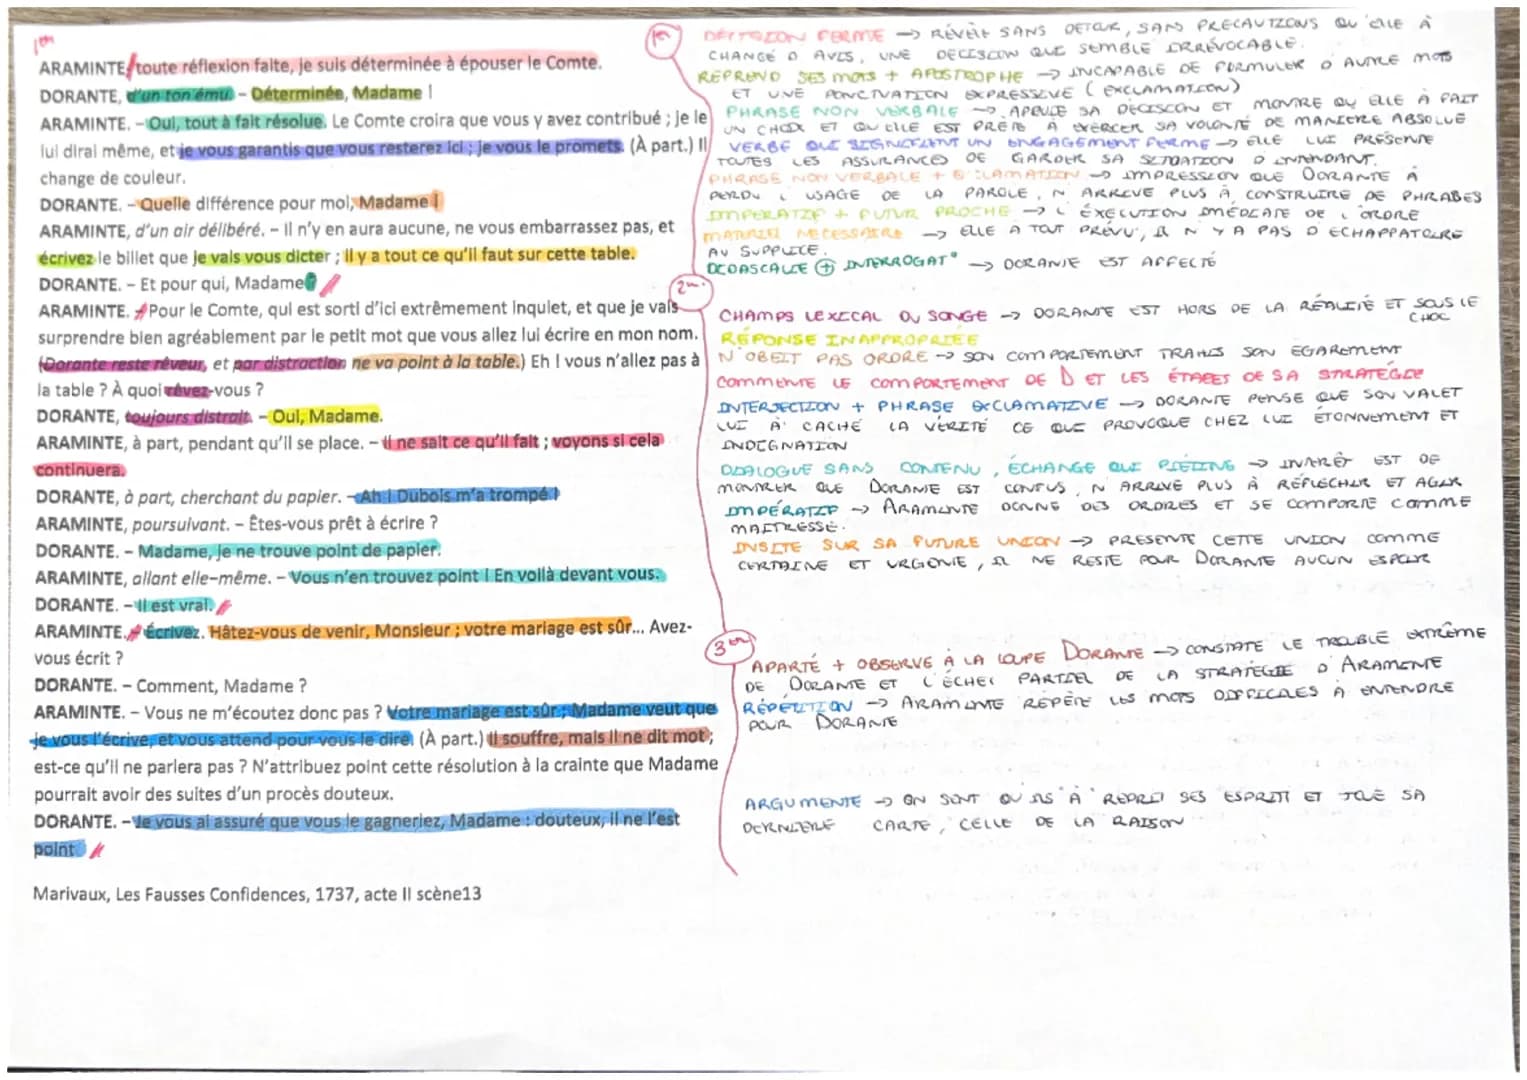 1er
ARAMINTE, toute réflexion faite, je suis déterminée à épouser le Comte.
DORANTE, d'un ton ému. – Déterminée, Madame !
ARAMINTE. – Oui, tout à fait résolue. Le Comte croira que vous y avez contribué ; je le
lui dirai même, et je vous garantis que vous resterez ici ; je vous le promets. (À part.) Il
change de couleur.
DORANTE. – Quelle différence pour moi, Madame !
ARAMINTE, d'un air délibéré. – Il n'y en aura aucune, ne vous embarrassez pas, et
écrivez le billet que je vais vous dicter ; il y a tout ce qu'il faut sur cette table.
DORANTE. – Et pour qui, Madame ?
ARAMINTE. – Pour le Comte, qui est sorti d'ici extrêmement inquiet, et que je vais
surprendre bien agréablement par le petit mot que vous allez lui écrire en mon nom.
(Dorante reste rêveur, et par distraction ne va point à la table.) Eh ! vous n'allez pas à
la table ? À quoi rêvez-vous ?
DORANTE, toujours distrait. – Oui, Madame.
ARAMINTE, à part, pendant qu'il se place. – Il ne sait ce qu'il fait ; voyons si cela
continuera.
DORANTE, à part, cherchant du papier. – Ah ! Dubois m'a trompé !
ARAMINTE, poursuivant. – Êtes-vous prêt à écrire ?
DORANTE. – Madame, je ne trouve point de papier.
ARAMINTE, allant elle-même. – Vous n'en trouvez point ! En voilà devant vous.
DORANTE. – Il est vrai.
ARAMINTE. – Écrivez. Hâtez-vous de venir, Monsieur ; votre mariage est sûr... Avez-
vous écrit ?
DORANTE. – Comment, Madame ?
ARAMINTE. – Vous ne m'écoutez donc pas ? Votre mariage est sûr ; Madame veut que
je vous l'écrive, et vous attend pour vous le dire. (À part.) Il souffre, mais il ne dit mot ;
est-ce qu'il ne parlera pas ? N'attribuez point cette résolution à la crainte que Madame
pourrait avoir des suites d'un procès douteux.
DORANTE. – Je vous ai assuré que vous le gagneriez, Madame : douteux, il ne l'est
point
Marivaux, Les Fausses Confidences, 1737, acte II scène13
1er
DÉCISION FERME → RÉVÈLE SANS DETOUR, SANS PRECAUTIONS QU'ELLE À
CHANGÉ D AVIS, UNE DECISION QUI SEMBLE IRRÉVOCABLE.
REPREND SES MOTS + APOSTROPHE → INCAPABLE DE FORMULER D AUTRE MOTS
ET UNE PONCTUATION EXPRESSIVE (EXCLAMATION)
PHRASE NON VERBALE → APPUIE SA DÉCISION ET MONTRE QU ELLE À FAIT
UN CHOIX ET QU ELLE EST PRÊTE À EXERCER SA VOLONTÉ DE MANIERE ABSOLUE
VERBE QUI SIGNIFIENT UN ENGAGEMENT FERME → ELLE LUI PRÉSENTE
TOUTES LES ASSURANCES DE GARDER SA SITUATION D INTENDANT.
PHRASE NON VERBALE + EXCLAMATION → IMPRESSION QUE DORANTE À
PERDU L USAGE DE LA PAROLE, N ARRIVE PLUS À CONSTRUIRE DE PHRASES
IMPERATIF + FUTUR PROCHE → L ÉXECUTION IMÉDIATE DE L ORDRE
MATERIEL NECESSAIRE → ELLE A TOUT PRÉVU, IL N Y A PAS D ECHAPPATOIRE
AU SUPPLICE.
DIDASCALIE + INTERROGAT° → DORANTE EST AFFECTÉ
2em
CHAMPS LEXICAL DU SONGE → DORANTE EST HORS DE LA RÉALITÉ ET SOUS LE
CHOC
RÉPONSE INAPPROPRIÉE
N'OBEIT PAS ORDRE → SON COMPORTEMENT TRAHIS SON ÉGAREMENT
COMMENTE LE COMPORTEMENT DE D ET LES ÉTAPES DE SA STRATÉGIE
INTERJECTION + PHRASE EXCLAMATIVE → DORANTE PENSE QUE SON VALET
LUI À CACHÉ LA VÉRITÉ CE QUI PROVOQUE CHEZ LUI ÉTONNEMENT ET
INDIGNATION
DIALOGUE SANS CONTENU, ÉCHANGE QUI PIÉTINE → INTÉRÊT EST DE
MONTRER QUE DORANTE EST CONFUS, N ARRIVE PLUS À RÉFLECHIR ET AGIR
IMPÉRATIF → ARAMINTE DONNE DES ORDRES ET SE COMPORTE COMME
MAITRESSE.
INSITE SUR SA FUTURE UNION → PRESENTE CETTE UNION COMME
CERTAINE ET URGENTE, IL NE RESTE POUR DORANTE AUCUN ESPOIR
3em
APARTÉ + OBSERVE À LA LOUPE DORANTE → CONSTATE LE TROUBLE EXTRÊME
DE DORANTE ET L'ÉCHEC PARTIEL DE LA STRATÉGIE D'ARAMINTE
RÉPÉTITION → ARAMINTE RÉPÈTE LES MOTS DIFFICILES À ENTENDRE
POUR DORANTE
ARGUMENTE → ON SENT QU IL À REPRIS SES ESPRITS ET JOUE SA
DERNIERE CARTE, CELLE DE LA RAISON